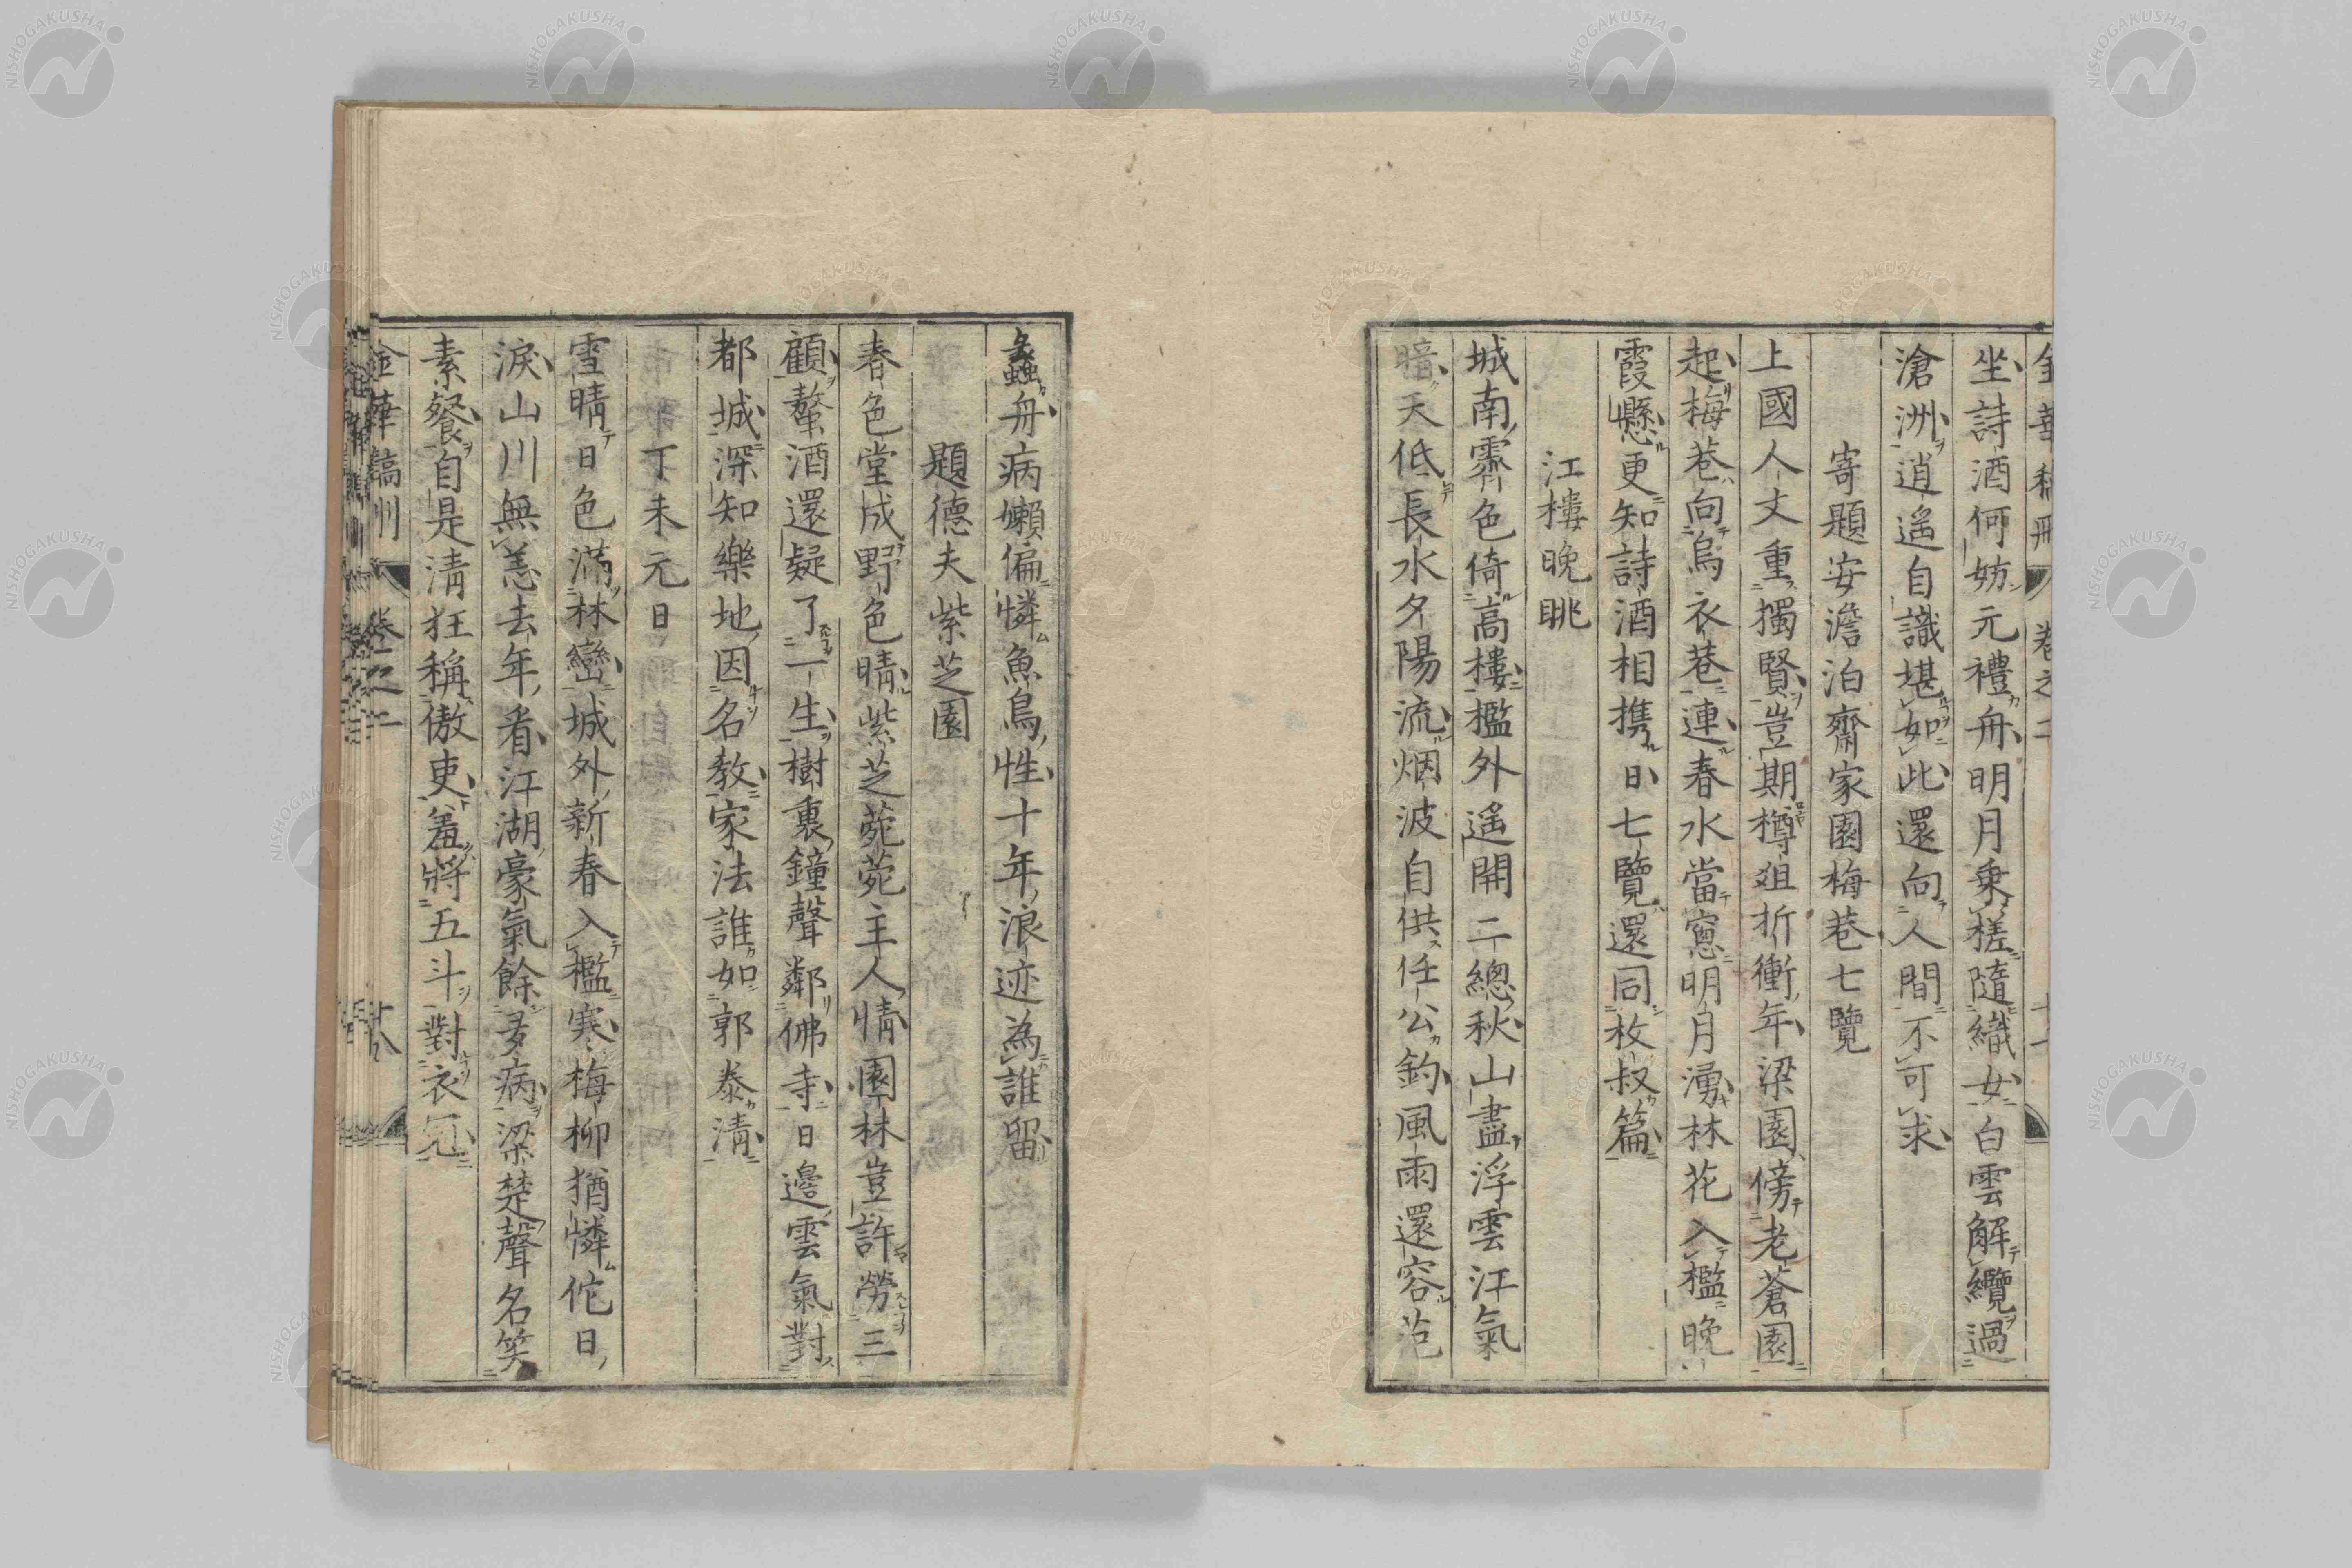 坐詩酒何妨元禮舟明月乗槎隨織女白雲解纜過
滄洲逍遙自識堪如此還向人間不可求
寄題安澹泊齋家園梅巷七覽
上國人文重獨賢豈期樽俎折衝年梁園傍老蒼園
起梅巷向烏衣巷連春水當窻明月湧林花入檻晚
霞懸更知詩酒相携日七覽還同枚叔篇
江樓晩眺
城南霽色倚高樓檻外遙開二總秋山盡浮雲江氣
暗天低長水夕陽流烟波自供任公釣風雨還容范
蠡舟病懶偏憐魚鳥性十年浪迹為誰留
題德夫紫芝園
春色堂成野色晴紫芝菀菀主人情園林豈許勞三
顧螯酒還疑了一生樹裏鐘聲鄰佛寺日邊雲氣對
都城深知樂地因名教家法誰如郭泰清
丁未元日
雪晴日色滿林巒城外新春入檻寒梅柳猶憐佗日
淚山川無恙去年看江湖豪氣餘多病梁楚聲名笑
素餐自是淸狂稱傲吏羞將五斗對衣冠
金華稿刪 卷之二 十八
NISHOGAKUSHA